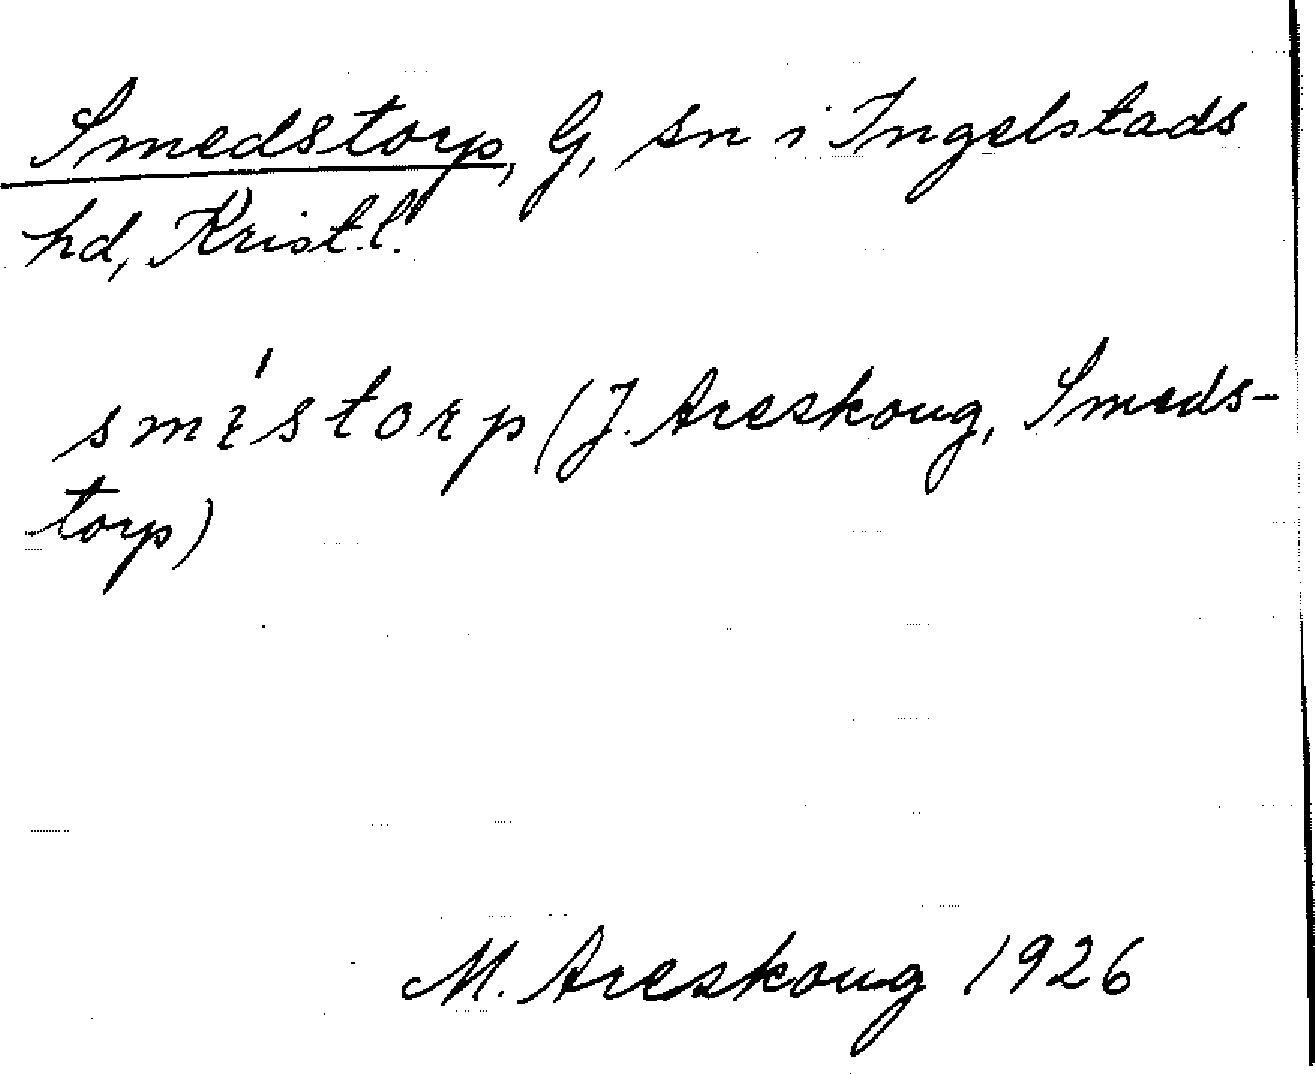 Smedstorp, G, sn i Ingelstads
hd, Krist.l.
smɛ'storp (J. Areskoug, Smeds-
torp)
M. Areskoug 1926